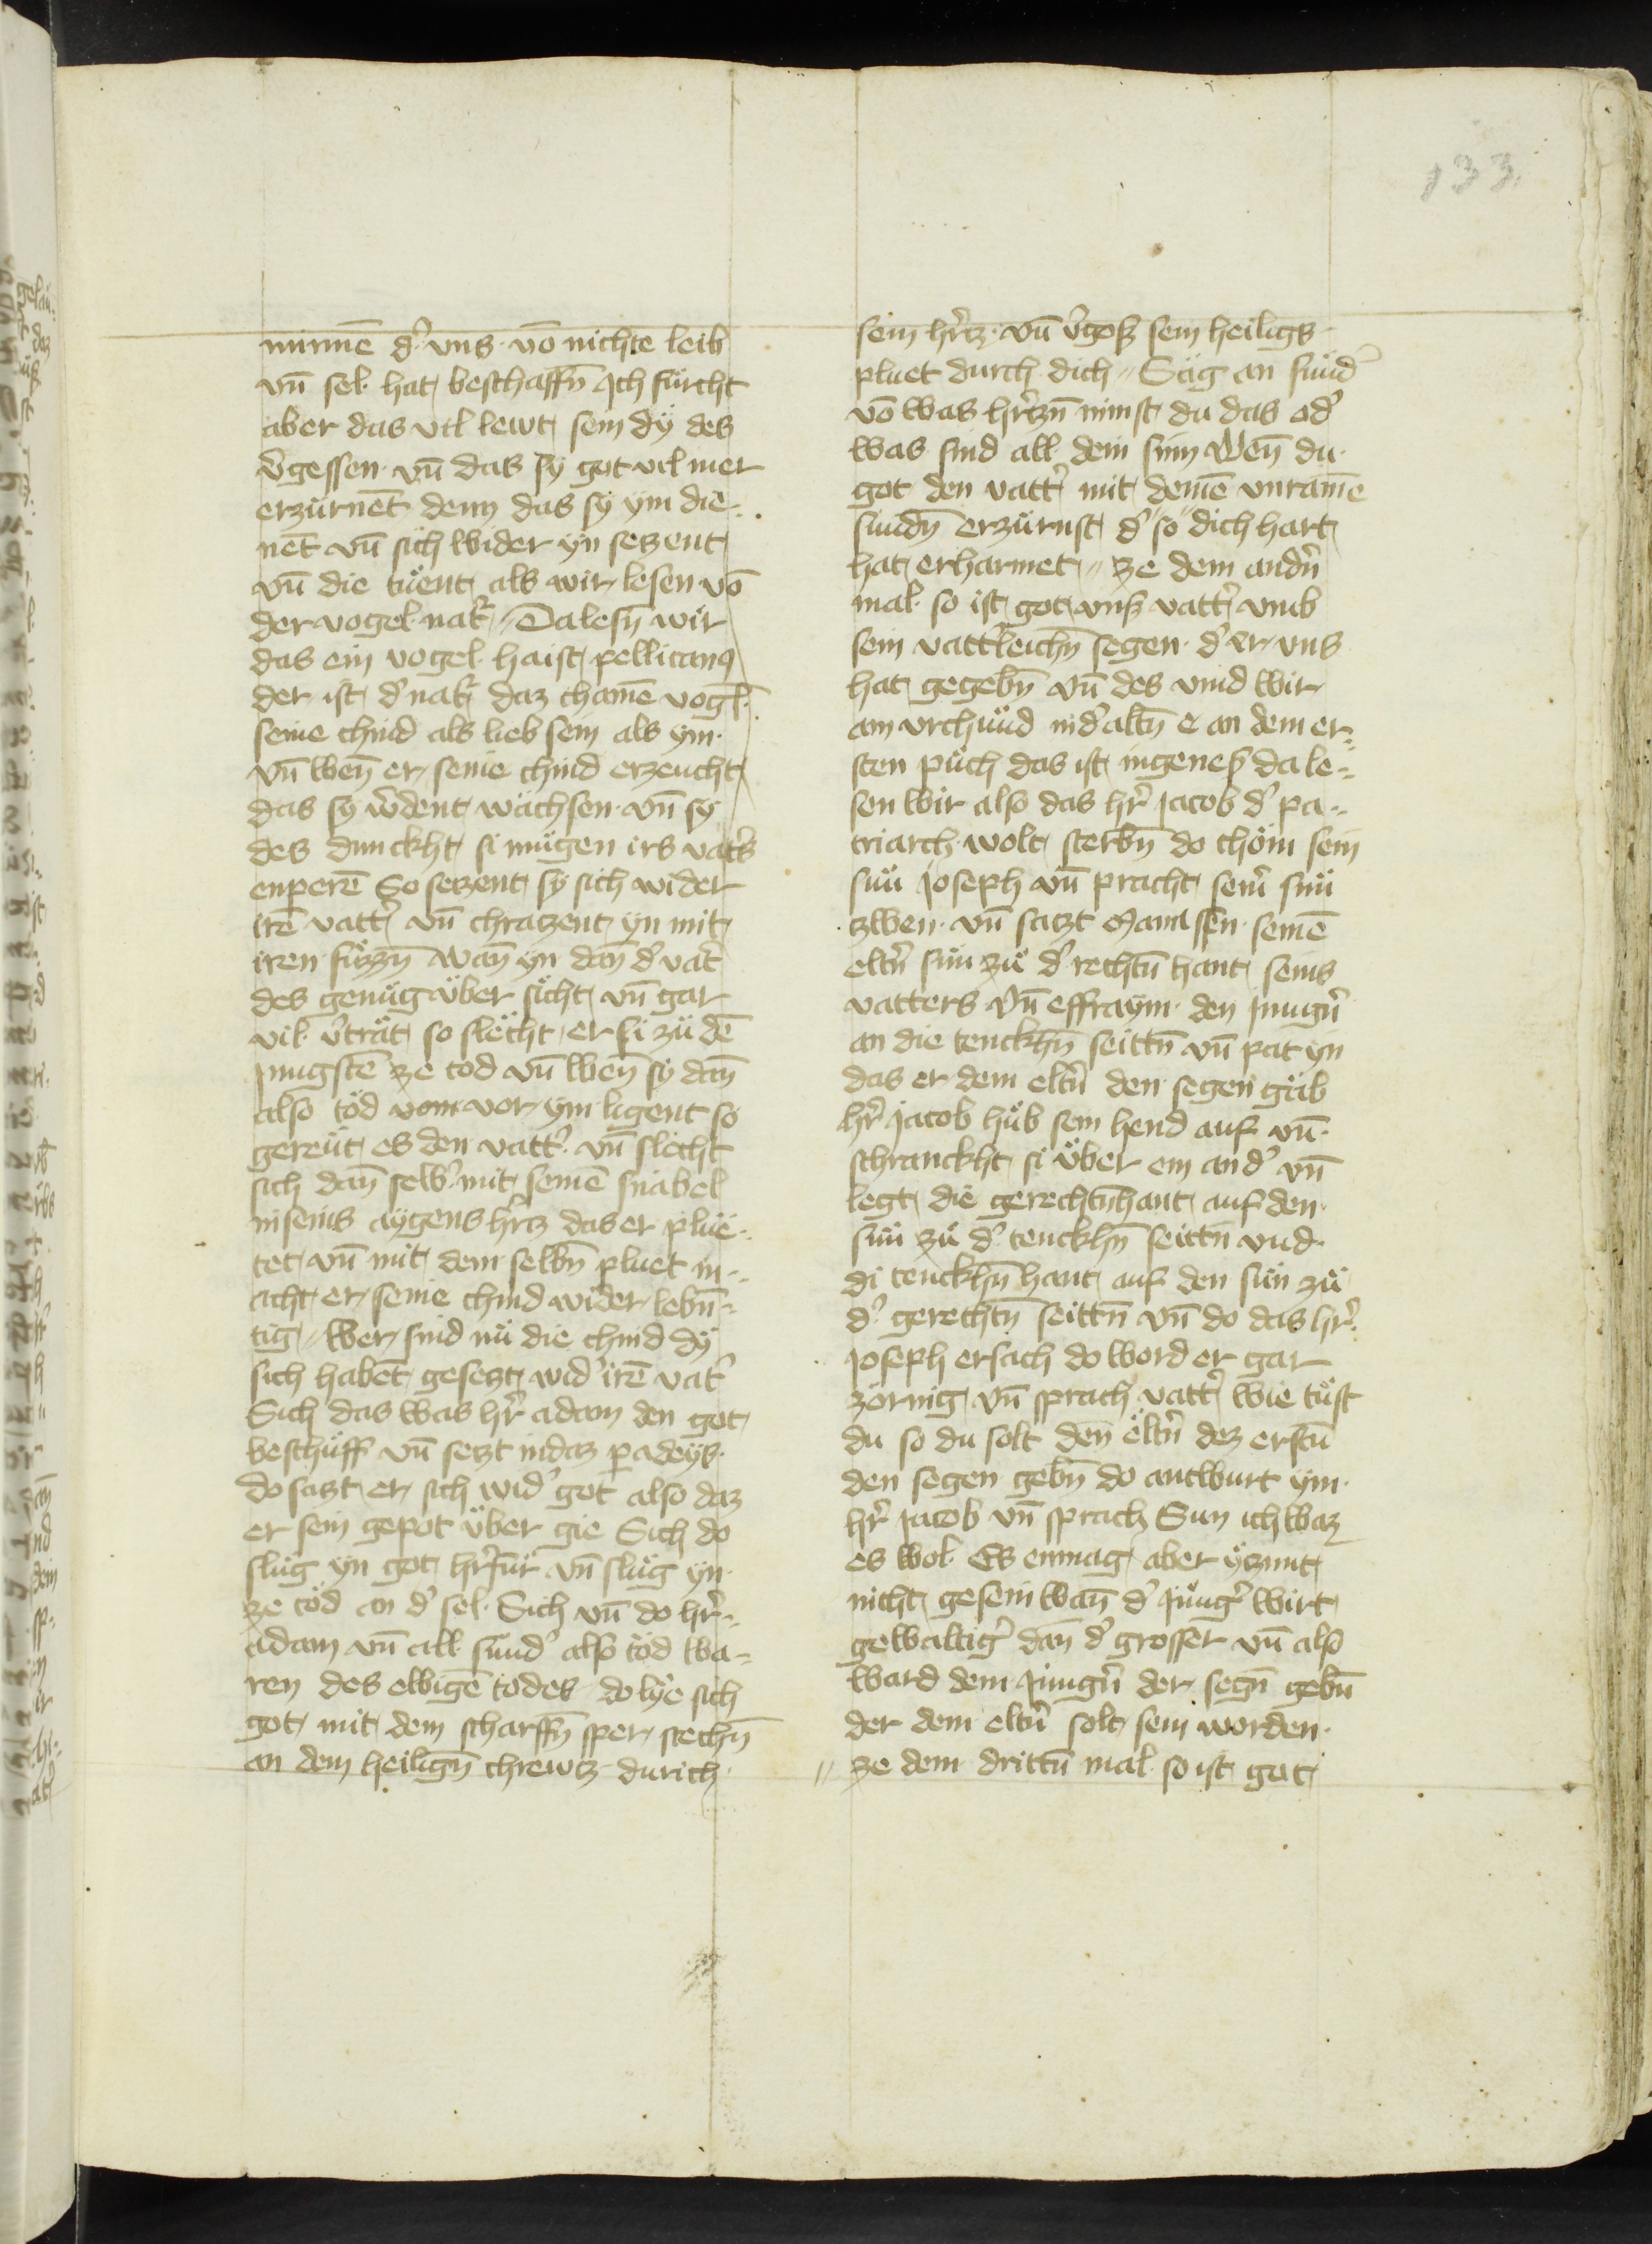 133
minnē d' vns vō nichte leib
vn̄ sel hat beschaffn̄ Ich fürcht
aber das vil lewt sein dÿ des
v̄gessen vn̄ das sÿ got vil mer
erzürnēt denn das sÿ ym die¬
nēt vn̄ sich wider yn seczent
vn̄ die tüent als wir lesen vō
der vogel nat' Da lesn̄ wir
das ein vogel haist pellicanꝰ
der ist d' nat' daz chainē vogl̄
seine chind als lieb sein als ym
vn̄ wen̄ er seine chind erzeucht
das sÿ w̄dent wachsen vn̄ sÿ
des dunckht si mügen irs vat's
enperē So seczent sÿ sich wider
irē vatt' vn̄ chraczent yn mit
iren füzzn̄ wan̄ yn dan̄ d' vat'
des genüg über sicht vn̄ gar
vil v̄trät so slecht er si zü dē
jungstē ze tod vn̄ wen̄ sÿ dan̄
also töd vor ym ligent so
gereüt es den vatt' vn̄ slecht
sich dan̄ selb' mit seinē snabel
in seins aÿgens h'rcz das er plüe¬
tet vn̄ mit dem selbn̄ pluet m¬
acht er seine chind wider lebn̄¬
tig wer sind nü die chind dÿ
sich habēt geseczt wid' irē vat'
Sich das was h'r adam den got
beschüff vn̄ seczt in daz padeÿs
do saczt er sich wid' got also daz
er sein gepot über gie Sich do
slüg yn got h'rfür vn̄ slüg yn
ze töd an d' sel Sich vn̄ do h'r
adam vn̄ all sünd' also töd wa¬
ren des ewigē todes do lÿe sich
got mit dem scharffn̄ sper stechn̄
an dem heilign̄ chrewcz durich
sein h'rcz vn̄ v̄gosz sein heiligs
pluet durch dich Säg an sünd'
vō was h'rczn̄ nimst du das od'
was sind all dein sinn wen̄ du
got den vatt' mit deinē vnrainē
sündn̄ erzürnst d' so dich hart
hat erharmet ze dem andn̄
mal so ist got vnsz vatt' vmb
sein vatt'leichn̄ segen d' er vns
hat gegebn̄ vn̄ des vind wir
ain vrchünd in d' altn̄ e an dem er¬
sten püch das ist in genes' da le¬
sen wir also das h'r jacob d' pa¬
triarch wolt sterbn̄ do chöm sein
sün joseph vn̄ pracht sein' sün
zwen vn̄ saczt Manassen seinē
eltn̄ sün zü d' rechtn̄ hant seins
vatters vn̄ effraym den jungn̄
an die tenckhn̄ seittn̄ vn̄ pat yn
das er dem eltn̄ den segen gäb
h'r jacob hüb sein hend auf vn̄
schranckht si über ein and' vn̄
legt die gerechtn̄ hant auf den
sün zü d' tenckhn̄ seittn̄ vnd
di tenckhn̄ hant auf den sün zü
d' gerechtn̄ seittn̄ vn̄ do das h'r
joseph ersach do word er gar
zornig vn̄ sprach vatt' wie tüst
du so du solt den̄ eltn̄ dez erstn̄
den segen gebn̄ do antwurt ym
h'r jacob vn̄ sprach Sun ich waz
es wol Es enmag aber yczunt
nicht gesein wan̄ d' jüng' wirt
gewaltig' dan̄ d' grosser vn̄ also
ward dem jüngn̄ der segn̄ gebn̄
der dem eltn̄ solt sein worden
ze dem drittn̄ mal so ist got